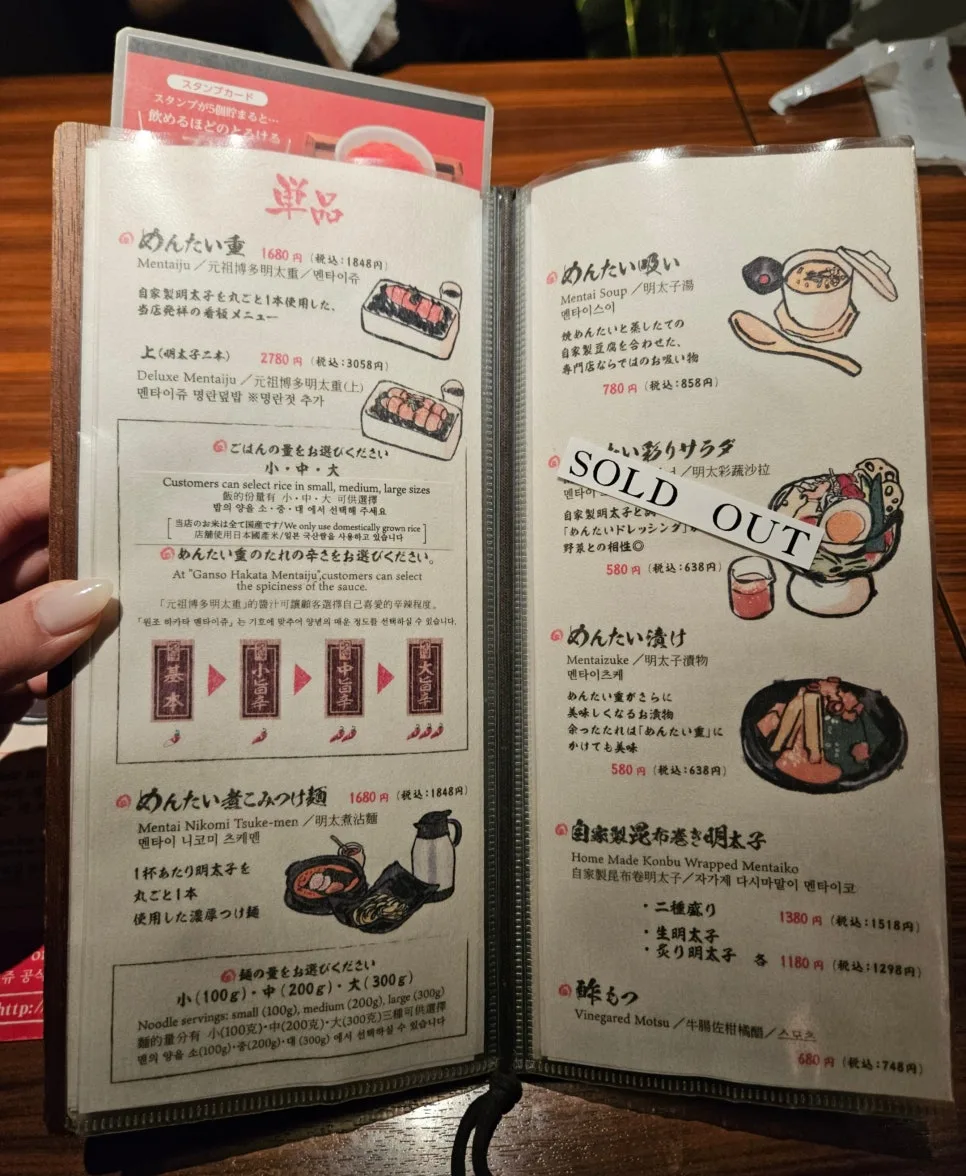 スタンプカード
スタンプが5個貯まると…
飲めるほどのとろける
単品
めんたい重 1680円（税込：1848円）
Mentaiju／元祖博多明太重／멘타이쥬
自家製明太子を丸ごと1本使用した、
当店発祥の看板メニュー
上（明太子二本） 2780円（税込：3058円）
Deluxe Mentaiju／元祖博多明太重(上)
멘타이쥬 명란덮밥 ※명란젓 추가
ごはんの量をお選びください
小・中・大
Customers can select rice in small, medium, large sizes
飯的份量有 小・中・大 可供選擇
밥의 양을 소・중・대 에서 선택해 주세요
当店のお米は全て国産です/We only use domestically grown rice
店舗使用日本國產米/일본 국산쌀을 사용하고 있습니다
めんたい重のたれの辛さをお選びください。
At "Ganso Hakata Mentaiju",customers can select
the spiciness of the sauce.
「元祖博多明太重」的醬汁可讓顧客選擇自己喜愛的辛辣程度。
「원조 하카타 멘타이쥬」는 기호에 맞추어 양념의 매운 정도를 선택하실 수 있습니다.
基本 小旨辛 中旨辛 大旨辛
めんたい煮こみつけ麺 1680円（税込：1848円）
Mentai Nikomi Tsuke-men／明太煮沾麵
멘타이 니코미 츠케멘
1杯あたり明太子を
丸ごと1本
使用した濃厚つけ麺
麺の量をお選びください
小(100g)・中(200g)・大(300g)
Noodle servings: small (100g), medium (200g), large (300g)
麵的量分有 小(100克)・中(200克)・大(300克)三種可供選擇
면의 양을 소(100g)・중(200g)・대 (300g) 에서 선택하실 수 있습니다
めんたい吸い
Mentai Soup／明太子湯
멘타이스이
焼めんたいと蒸したての
自家製豆腐を合わせた、
専門店ならではのお吸い物
780円（税込：858円）
たい彩りサラダ
／明太彩蔬沙拉
멘타이
SOLD OUT
自家製明太子と
「めんたいドレッシング」
野菜との相性◎
580円（税込：638円）
めんたい漬け
Mentaizuke／明太子漬物
멘타이즈케
めんたい重がさらに
美味しくなるお漬物
余ったたれは「めんたい重」に
かけても美味
580円（税込：638円）
自家製昆布巻き明太子
Home Made Konbu Wrapped Mentaiko
自家製昆布卷明太子／자가제 다시마말이 멘타이코
・二種盛り 1380円（税込：1518円）
・生明太子
・炙り明太子 各 1180円（税込：1298円）
酢もつ
Vinegared Motsu／牛腸佐柑橘醋／스모츠
680円（税込：748円）
쥬 공식
http:/